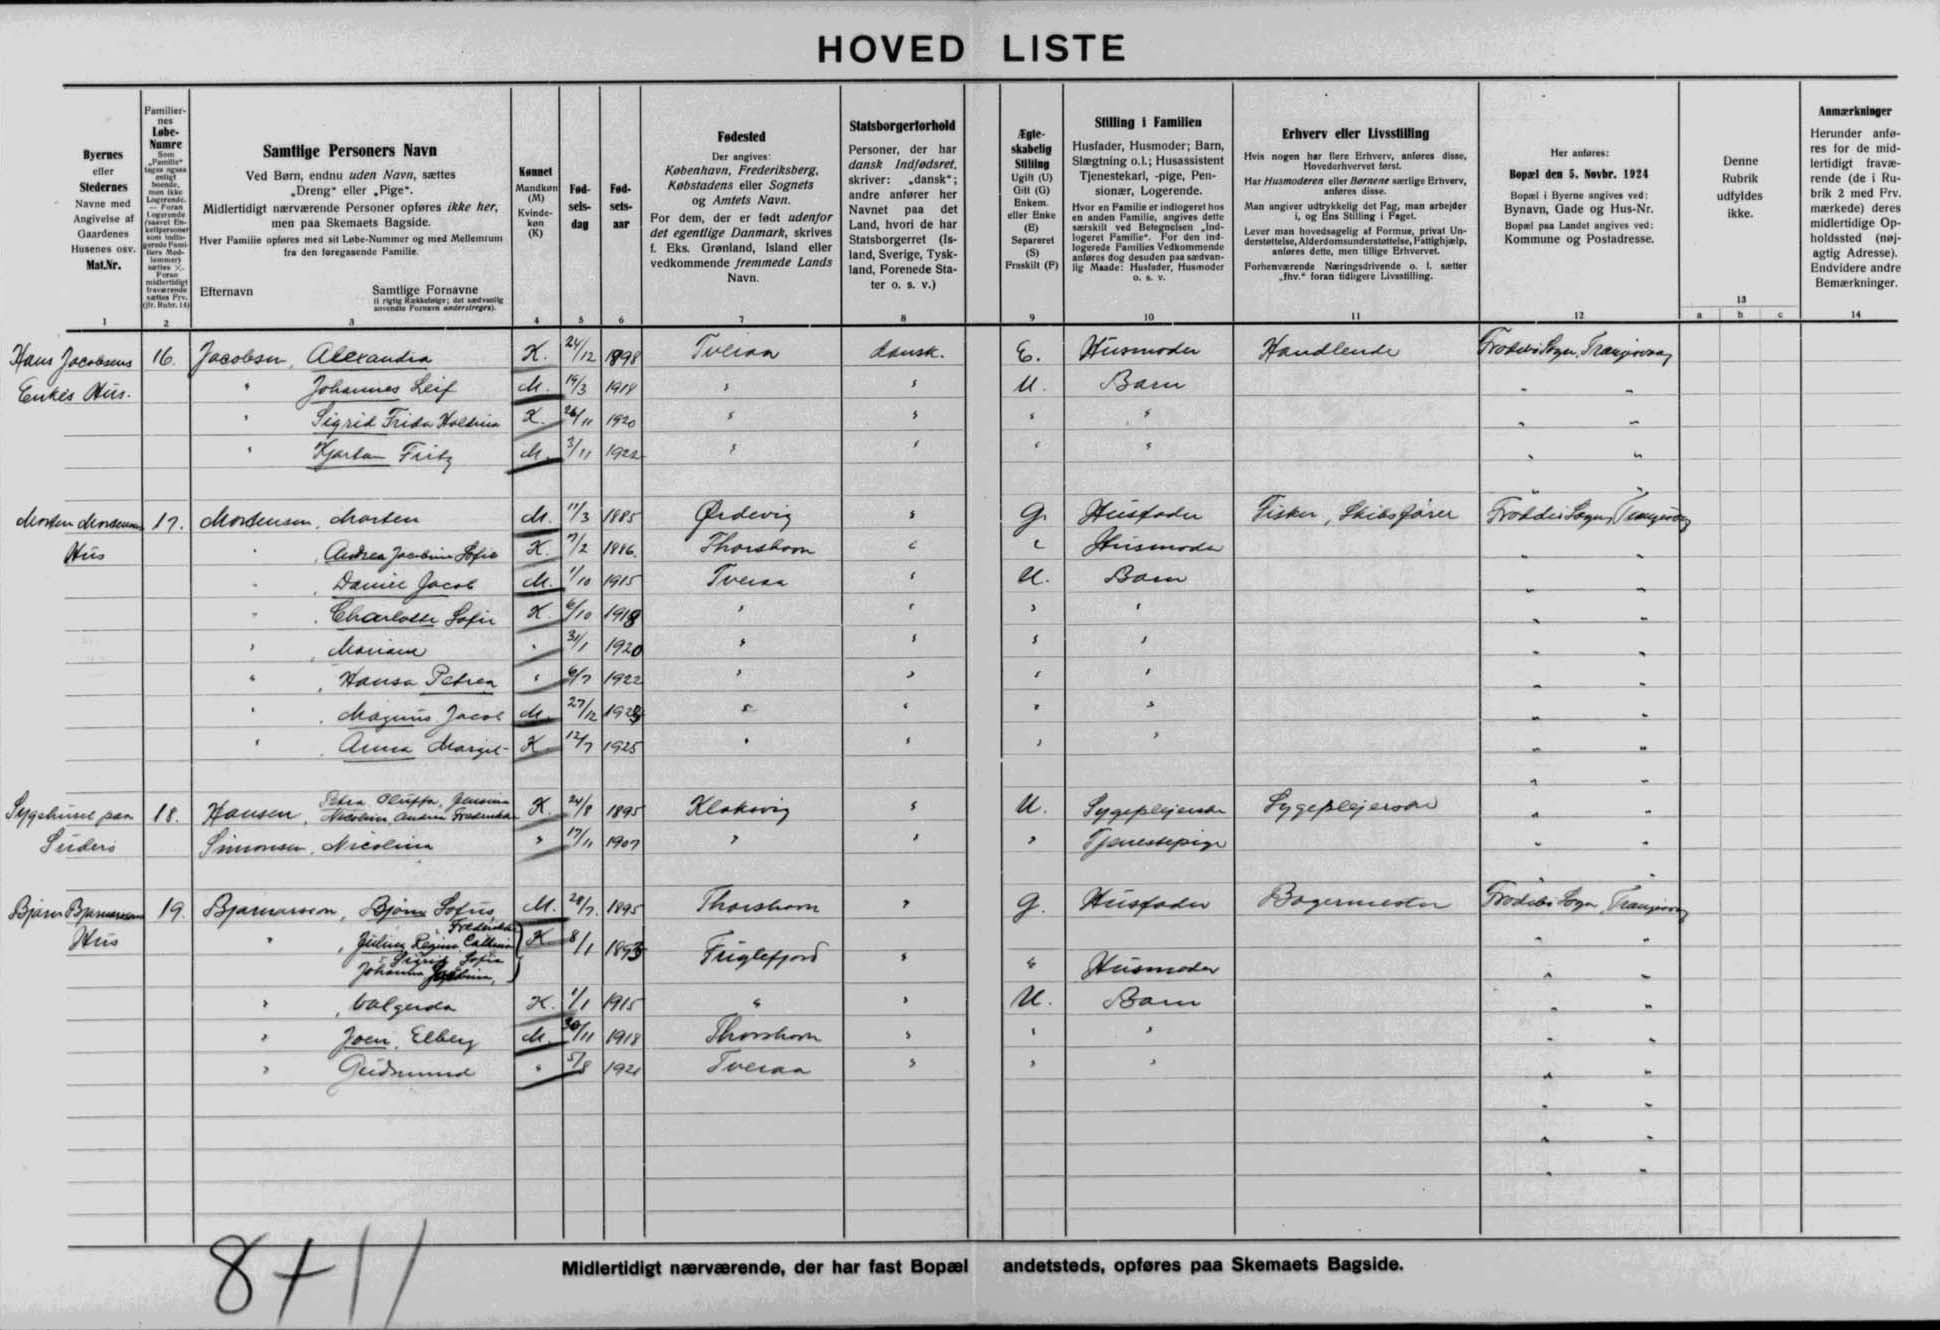 HOVED LISTE
Byernes
eller
Stedernes
Navne med
Angivelse af
Gaardenes
Husenes osv.
Mat.Nr.
1
Familier-
nes
Løbe-
Numre
2
Samtlige Personers Navn
Ved Børn, endnu uden Navn, sættes
„Dreng“ eller „Pige“.
Midlertidigt nærværende Personer opføres ikke her,
men paa Skemaets Bagside.
Hver Familie opføres med sit Løbe-Nummer og med Mellemrum
fra den foregaaende Familie.
Efternavn Samtlige Fornavne
(i rigtig Rækkefølge; det sædvanlig
anvendte Fornavn understreges).
3
Kønnet
Mandkøn
(M)
Kvinde-
køn
(K)
4
Fød-
sels-
dag
5
Fød-
sels-
aar
6
Fødested
Der angives:
København, Frederiksberg,
Købstadens eller Sognets
og Amtets Navn.
For dem, der er født udenfor
det egentlige Danmark, skrives
f. Eks. Grønland, Island eller
vedkommende fremmede Lands
Navn.
7
Statsborgerforhold
Personer, der har
dansk Indfødsret,
skriver: „dansk“;
andre anfører her
Navnet paa det
Land, hvori de har
Statsborgerret (Is-
land, Sverige, Tysk-
land, Forenede Sta-
ter o. s. v.)
8
Ægte-
skabelig
Stilling
Ugift (U)
Gift (G)
Enkem.
eller Enke
(E)
Separeret
(S)
Fraskilt (F)
9
Stilling i Familien
Husfader, Husmoder; Barn,
Slægtning o.l.; Husassistent
Tjenestekarl, -pige, Pen-
sionær, Logerende.
Hvor en Familie er indlogeret hos
en anden Familie, angives dette
særskilt ved Betegnelsen „Ind-
logeret Familie“. For den ind-
logerede Families Vedkommende
anføres dog desuden paa sædvan-
lig Maade: Husfader, Husmoder
o. s. v.
10
Erhverv eller Livsstilling
Hvis nogen har flere Erhverv, anføres disse,
Hovederhvervet først.
Har Husmoderen eller Børnene særlige Erhverv,
anføres disse.
Man angiver udtrykkelig det Fag, man arbejder
i, og Ens Stilling i Faget.
Lever man hovedsagelig af Formue, privat Un-
derstøttelse, Alderdomsunderstøttelse, Fattighjælp,
anføres dette, men tillige Erhvervet.
Forhenværende Næringsdrivende o. l. sætter
„fhv.“ foran tidligere Livsstilling.
11
Her anføres:
Bopæl den 5. Novbr. 1924
Bopæl i Byerne angives ved:
Bynavn, Gade og Hus-Nr.
Bopæl paa Landet angives ved:
Kommune og Postadresse.
12
Denne
Rubrik
udfyldes
ikke.
13
a b c
Anmærkninger
Herunder anfø-
res for de mid-
lertidigt fravæ-
rende (de i Ru-
brik 2 med Frv.
mærkede) deres
midlertidige Op-
holdssted (nøj-
agtig Adresse).
Endvidere andre
Bemærkninger.
14
Hans Jacobsens 16. Jacobsen, Alexandra K. 24/12 1898 Tveraa dansk. E. Husmoder Handlende
Enkes Hus. " Johannes Leif M. 19/3 1918 " " U. Barn " "
" Sigrid Frida K. 26/11 1920 " " " " " "
" Kjartan Fritz M. 3/11 1922 " " " " " "
Morten Mortensens 17. Mortensen, Morten M. 11/3 1885 Ørdevig " G. Husfader Fisker, Skibsfører
Hus " Andrea Jacobina Sofie K. 7/2 1886. Thorshavn " " Husmoder " "
" Daniel Jacob M. 1/10 1915 Tveraa " U. Barn " "
" Charlotte Sofie K. 6/10 1918 " " " " " "
" Mariane " 31/1 1920 " " " " " "
" Hansa Petrea " 6/7 1922 " " " " " "
" Magnus Jacob M. 27/12 1923 " " " " " "
" Anna Margit K. 12/7 1925 " " " " " "
Sygehuset paa 18. Hansen, Petra Oluffa, Jensina K. 24/8 1895 Klaksvig " U. Sygeplejerske Sygeplejerske " "
Suderø Simonsen, Nicolina " 17/11 1907 " " " Tjenestepige " "
19. Bjarnarson, Bjørn Sofus M. 28/7. 1895 Thorshavn " G. Husfader Bagermester
Hus " K 8/1 1893 Fuglefjord " " Husmoder " "
" Valgerda K. 1/1 1915 " " U. Barn " "
" Joen, Elberg M. 30/11 1918 Thorshavn " " " " "
" Gudmund " 5/8 1921 Tveraa " " " " "
8+11
Midlertidigt nærværende, der har fast Bopæl andetsteds, opføres paa Skemaets Bagside.